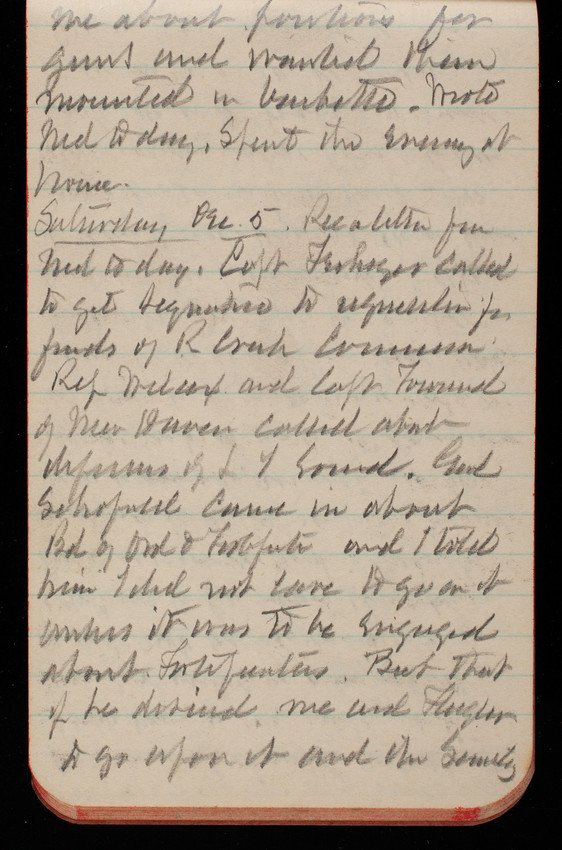 me about positions for
guns and wanted them
mounted in barbette. Wrote
Ned to day. Spent the evening at
home.
Saturday Dec. 5. Rec a letter from
Ned to day. Capt called
to get signature to requisition for
funds of R Creek Commission
Rep Wilcox and Capt Townsend
of New Haven called about
defenses of L I Sound. Genl
Schofield came in about
Bd of Ord & Fortfctn and I told
him I did not care to go on it
unless it was to be engaged
about Fortifications. But that
if he desired me and Flagler
to go upon it and the Secrety